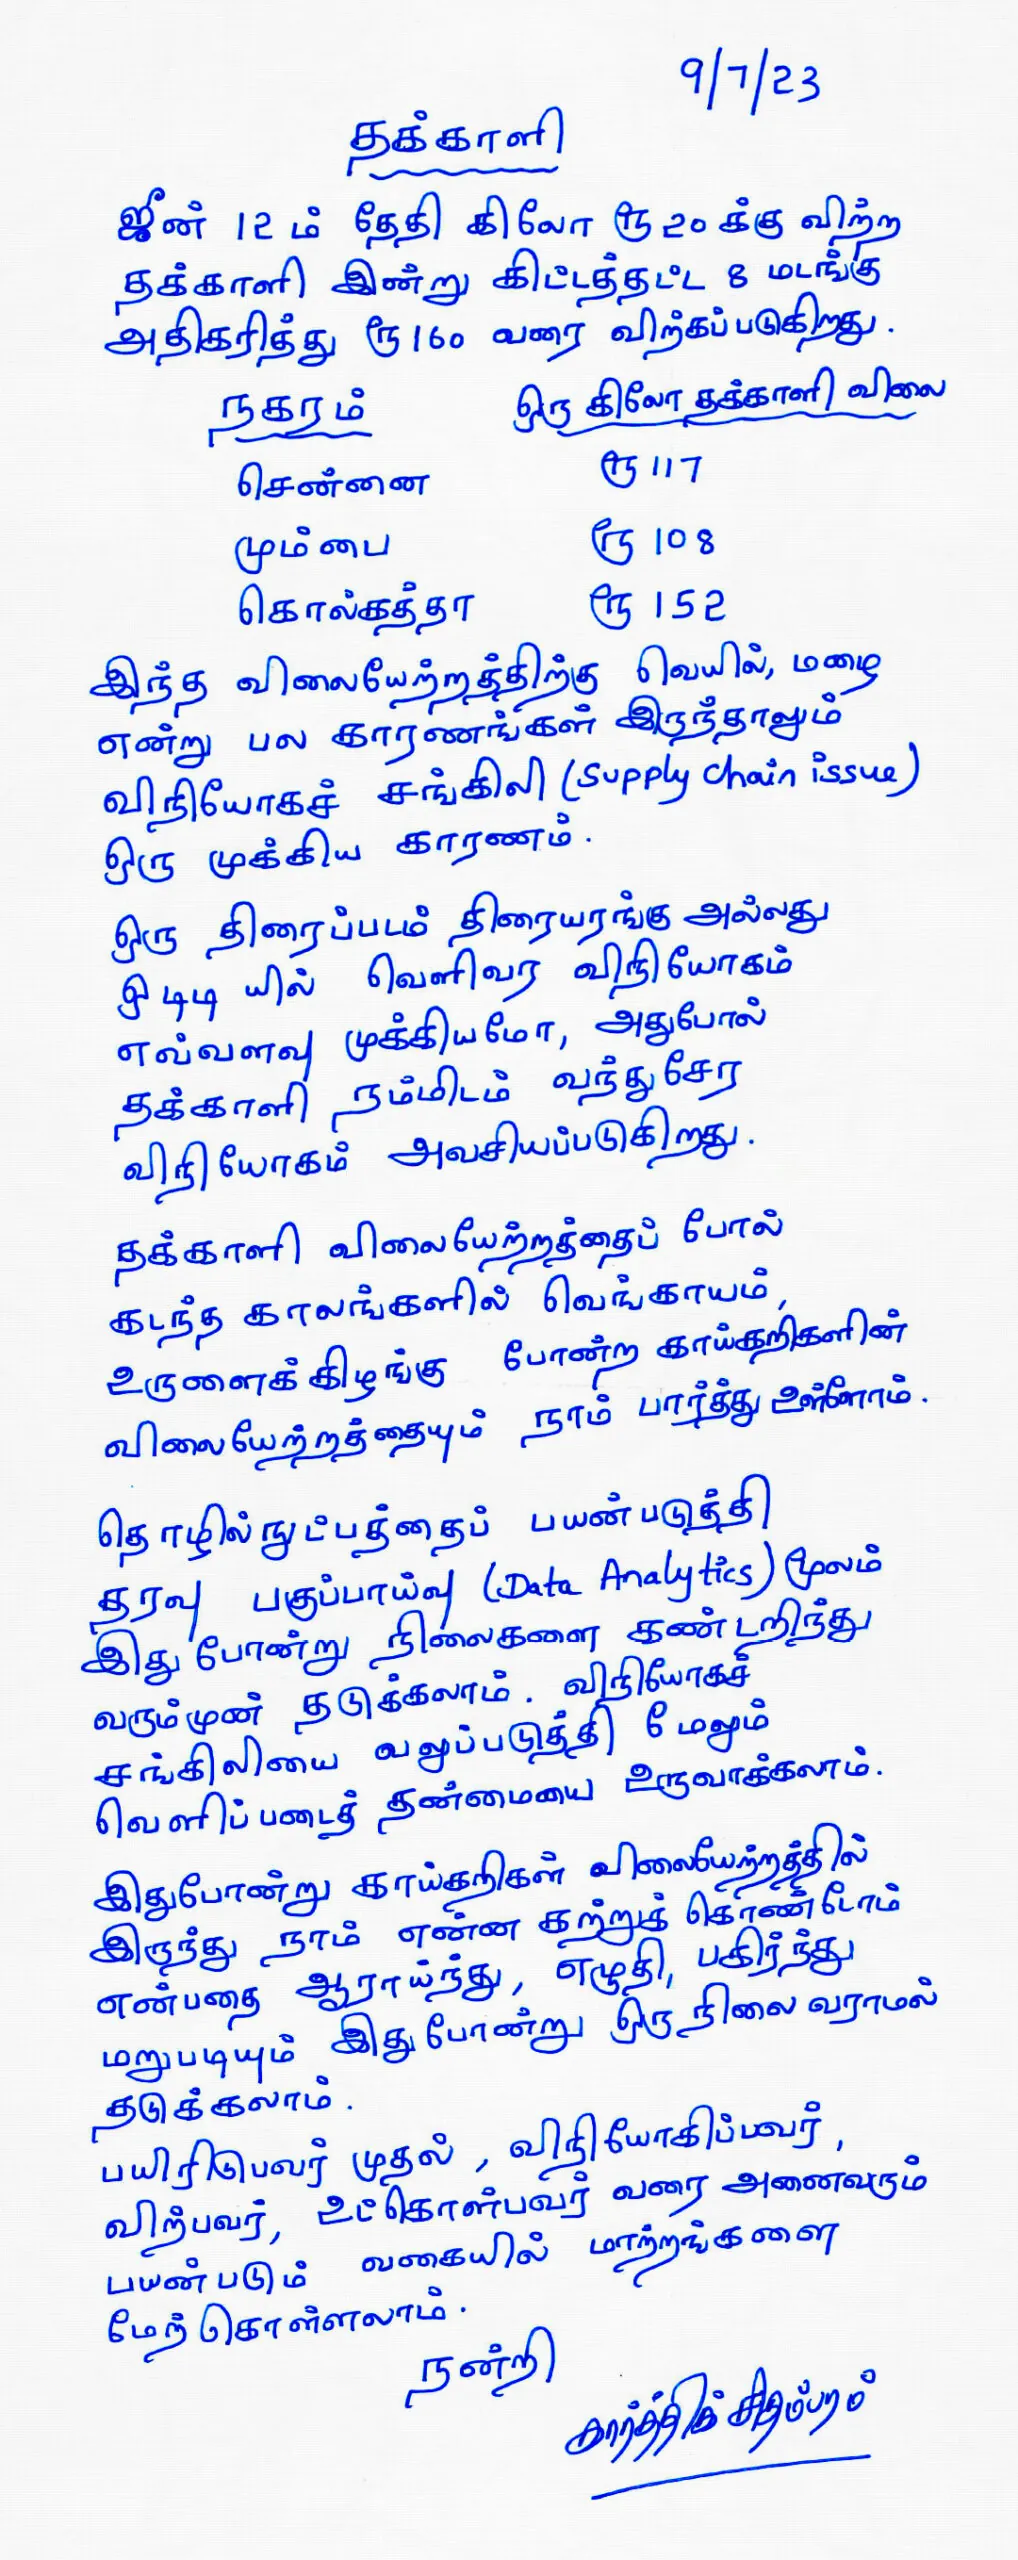 9/7/23
தக்காளி
ஜீன் 12ம் தேதி கிலோ ரூ20க்கு விற்ற
தக்காளி இன்று கிட்டத்தட்ட 8 மடங்கு
அதிகரித்து ரூ160 வரை விற்கப்படுகிறது.
நகரம் ஒரு கிலோ தக்காளி விலை
சென்னை ரூ 117
மும்பை ரூ 108
கொல்கத்தா ரூ 152
இந்த விலையேற்றத்திற்கு வெயில், மழை
என்று பல காரணங்கள் இருந்தாலும்
விநியோகச் சங்கிலி (Supply Chain issue)
ஒரு முக்கிய காரணம்.
ஒரு திரைப்படம் திரையரங்கு அல்லது
ஓடிடி யில் வெளிவர விநியோகம்
எவ்வளவு முக்கியமோ, அதுபோல்
தக்காளி நம்மிடம் வந்துசேர
விநியோகம் அவசியப்படுகிறது.
தக்காளி விலையேற்றத்தைப் போல்
கடந்த காலங்களில் வெங்காயம்,
உருளைக்கிழங்கு போன்ற காய்கறிகளின்
விலையேற்றத்தையும் நாம் பார்த்து உள்ளோம்.
தொழில்நுட்பத்தைப் பயன்படுத்தி
தரவு பகுப்பாய்வு (Data Analytics) மூலம்
இது போன்று நிலைகளை கண்டறிந்து
வரும்முன் தடுக்கலாம். விநியோகச்
சங்கிலியை வலுப்படுத்தி மேலும்
வெளிப்படைத் தன்மையை உருவாக்கலாம்.
இதுபோன்று காய்கறிகள் விலையேற்றத்தில்
இருந்து நாம் என்ன கற்றுக் கொண்டோம்
என்பதை ஆராய்ந்து, எழுதி, பகிர்ந்து
மறுபடியும் இதுபோன்று ஒரு நிலை வராமல்
தடுக்கலாம்.
பயிரிடுபவர் முதல், விநியோகிப்பவர்,
விற்பவர், உட்கொள்பவர் வரை அனைவரும்
பயன்படும் வகையில் மாற்றங்களை
மேற்கொள்ளலாம்.
நன்றி
கார்த்திக் சிதம்பரம்